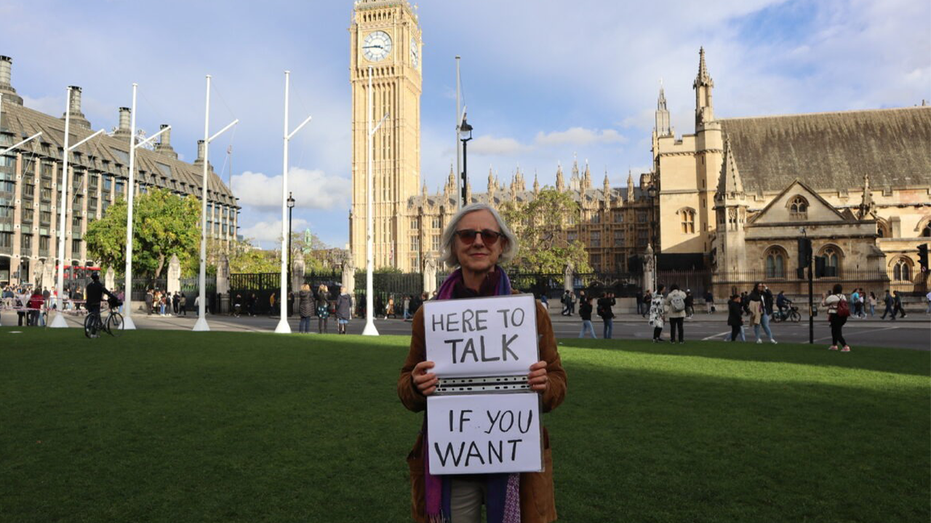 HERE TO
TALK
IF YOU
WANT